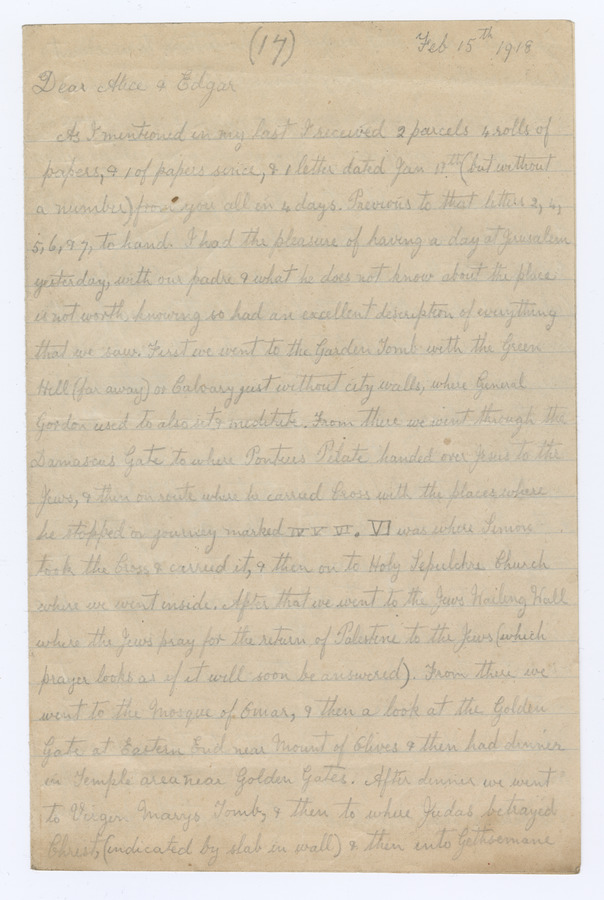 (17)
Feb 15th 1918
Dear Alice & Edgar
As I mentioned in my last I received 2 parcels 4 rolls of
papers, & 1 of papers since, & 1 letter dated Jan 17th (but without
a number) from you all in 4 days. Previous to that letters 2, 4,
5, 6, & 7, to hand. I had the pleasure of having a day at Jerusalem
yesterday, with our padre & what he does not know about the place
is not worth knowing so had an excellent description of everything
that we saw. First we went to the Garden Tomb with the Green
Hill (far away) or Calvary just without city walls, where General
Gordon used to also sit & meditate. From there we went through the
Damascus Gate to where Pontius Pilate handed over Jesus to the
Jews, & then on route where he carried Cross with the places where
he stopped on journey marked IV V VI. VI was where Simon
took the Cross & carried it, & then on to Holy Sepulchre Church
where we went inside. After that we went to the Jews Wailing Wall
where the Jews pray for the return of Palestine to the Jews (which
prayer looks as if it will soon be answered). From there we
went to the Mosque of Omar, & then a look at the Golden
Gate at Eastern End near Mount of Olives & then had dinner
in Temple area near Golden Gates. After dinner we went
to Virgin Marys Tomb, & then to where Judas betrayed
Christ, (indicated by slab in wall) & then into Gethsemane